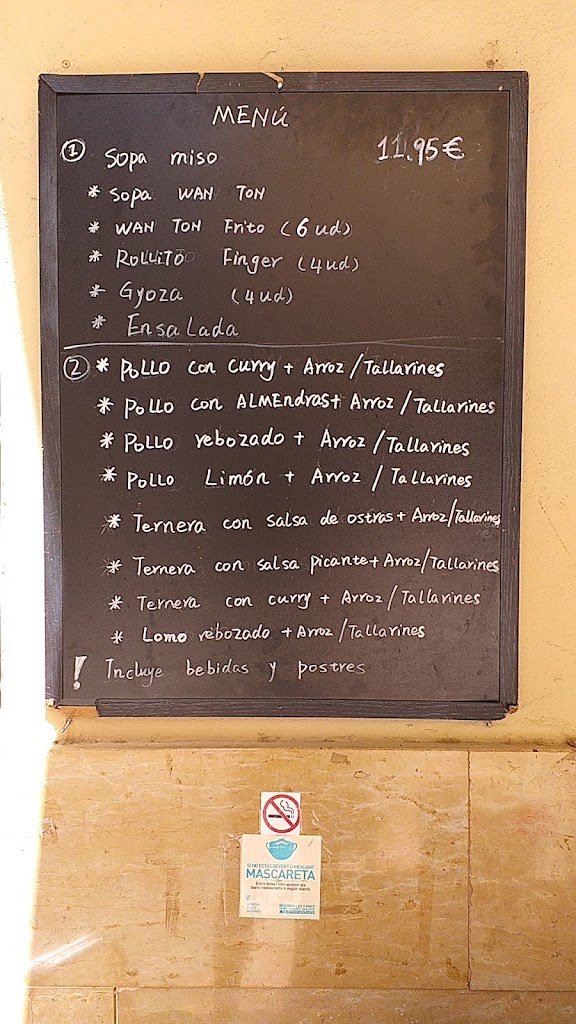 MENÚ
① Sopa miso 11.95€
* Sopa WAN TON
* WAN TON Frito (6 ud)
* ROLLITO Finger (4 ud)
* Gyoza (4 ud)
* Ensalada
② * POLLO con curry + Arroz/Tallarines
* POLLO con ALMEndras + Arroz/Tallarines
* POLLO rebozado + Arroz/Tallarines
* POLLO Limón + Arroz/Tallarines
* Ternera con salsa de ostras + Arroz/Tallarines
* Ternera con salsa picante + Arroz/Tallarines
* Ternera con curry + Arroz/Tallarines
* Lomo rebozado + Arroz/Tallarines
! Incluye bebidas y postres
SI NO ESTÀS BEVENT O MENJANT
MASCARETA